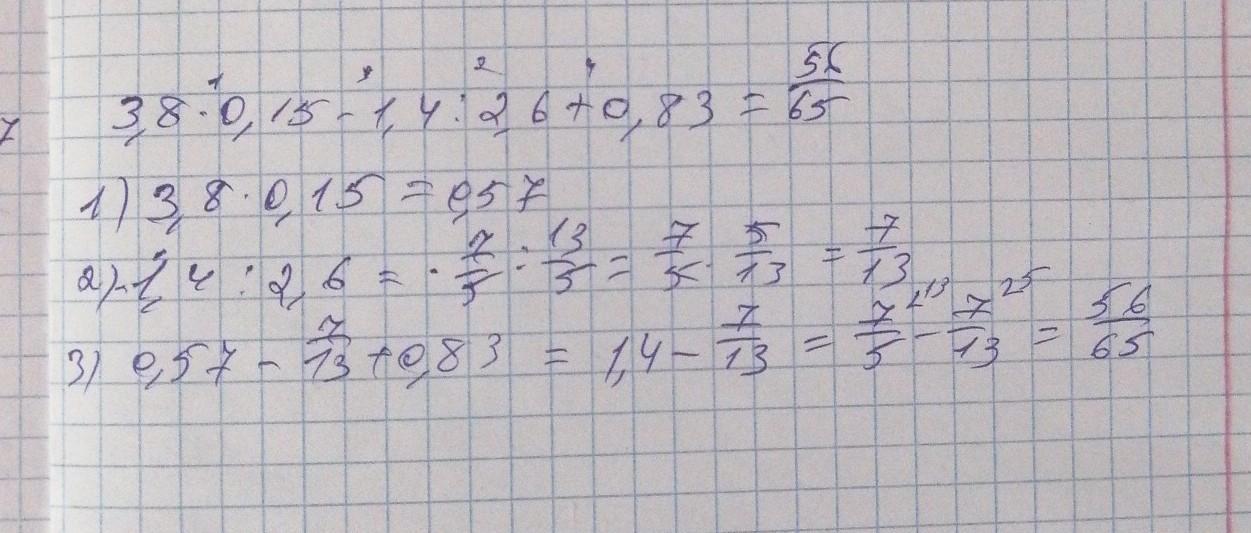 3,8 · 0,15 - 1,4 : 2,6 + 0,83 = 56/65
1) 3,8 · 0,15 = 0,57
2) -1,4 : 2,6 = - 7/5 : 13/5 = 7/5 · 5/13 = 7/13
3) 0,57 - 7/13 + 0,83 = 1,4 - 7/13 = 7/5 - 7/13 = 56/65